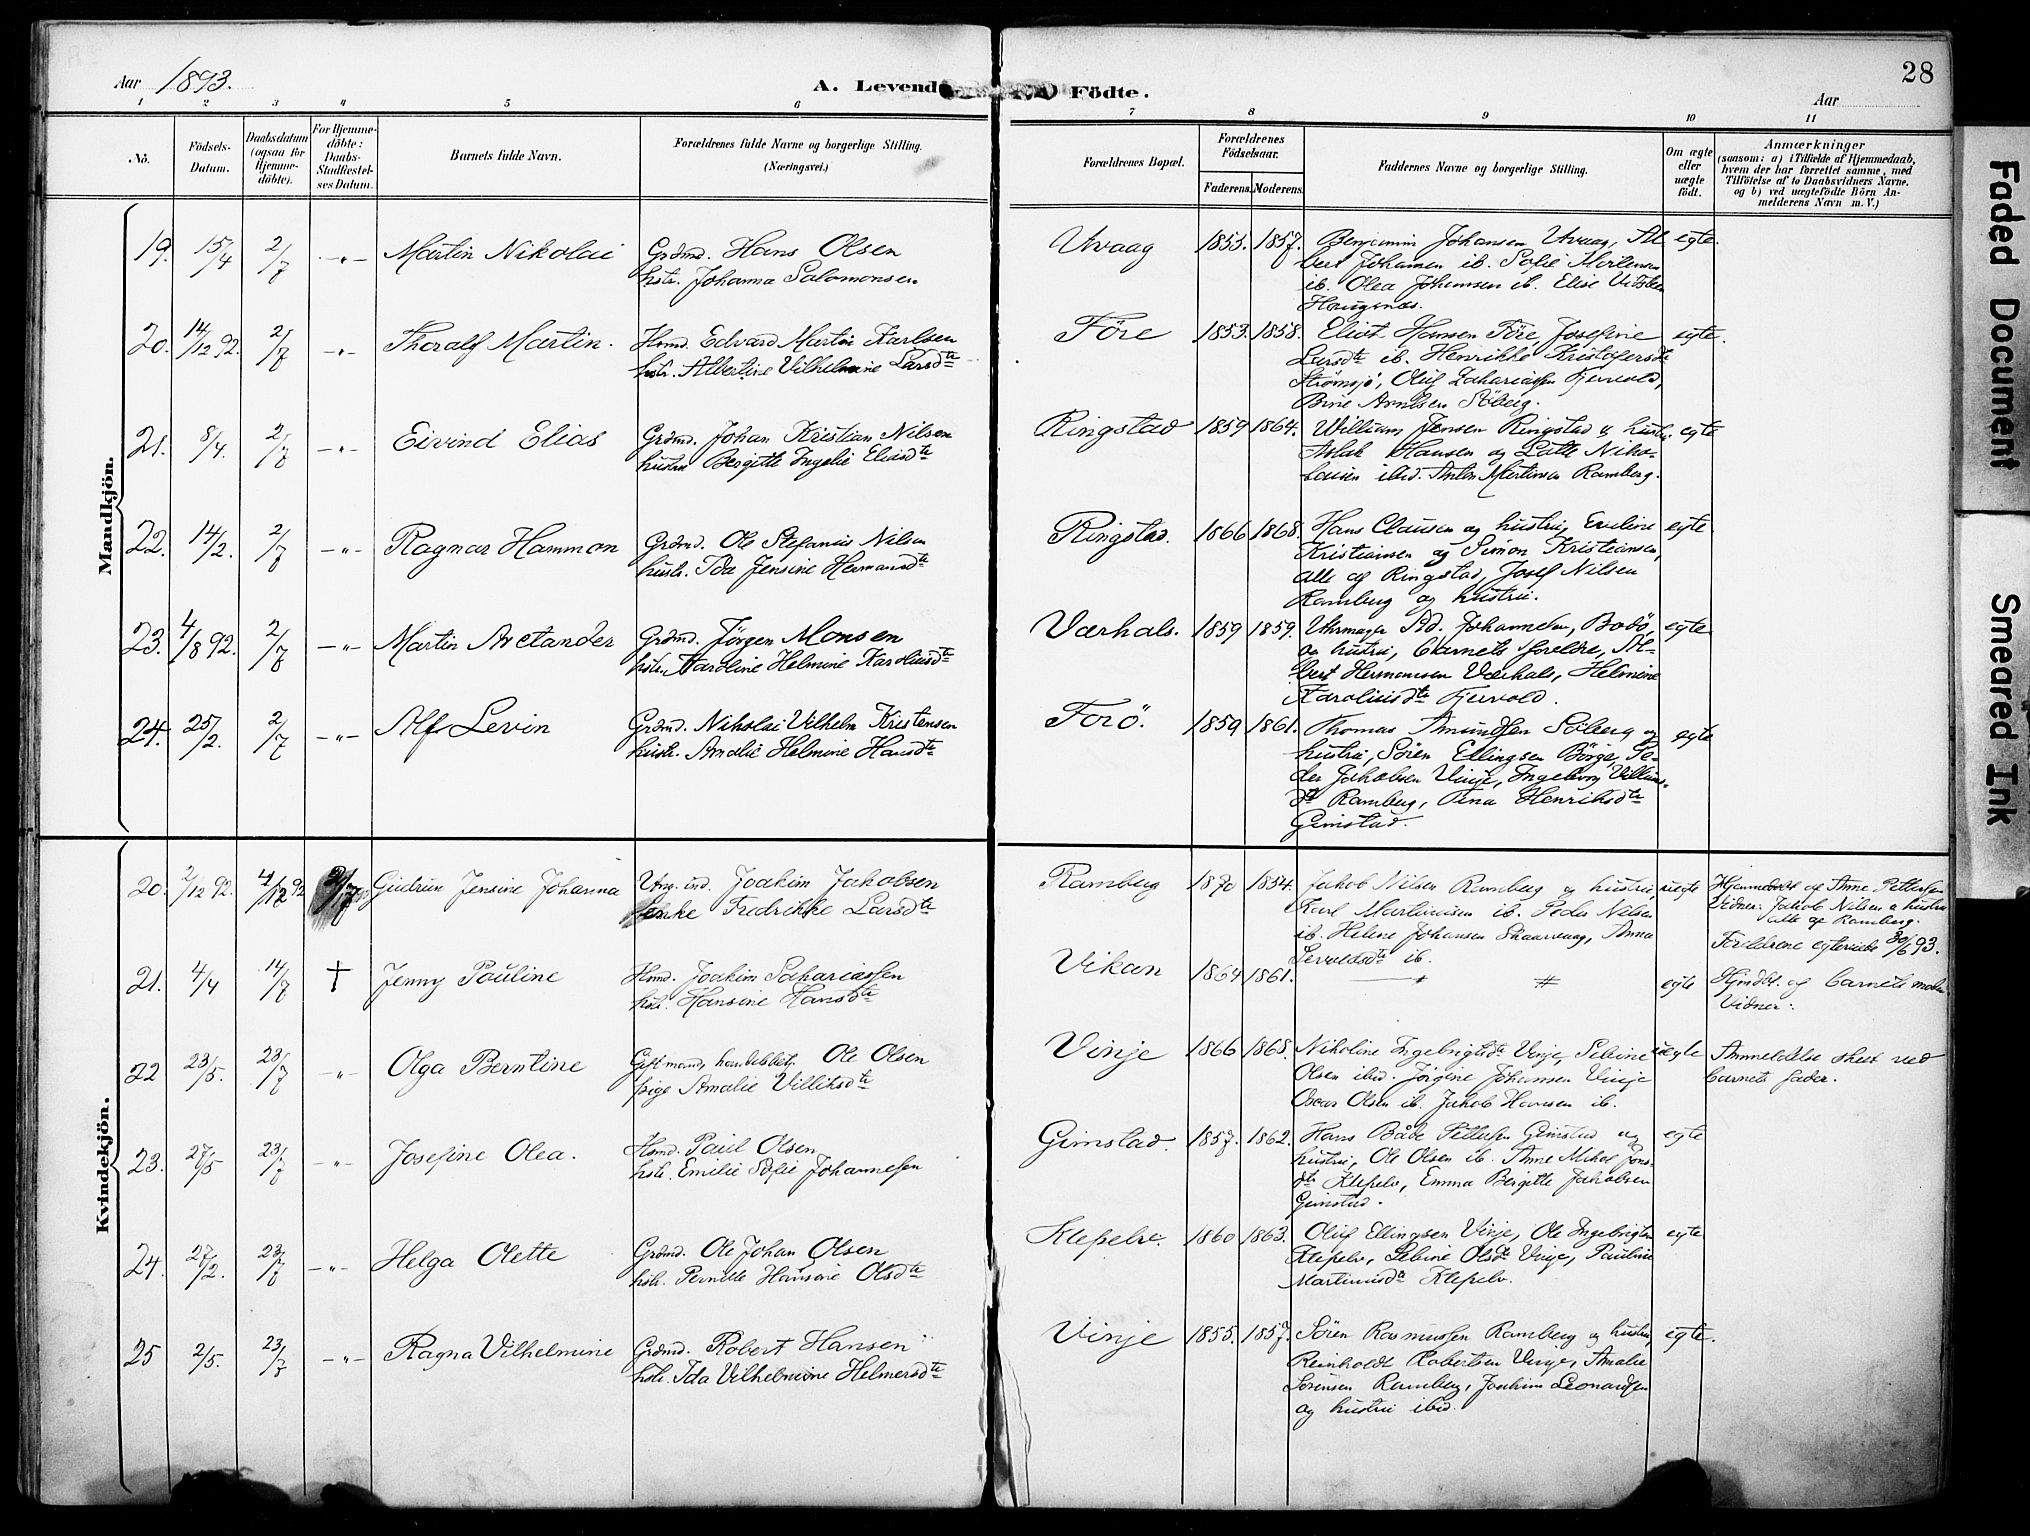 Aar 1893.
A. Levend Födte.
28
Aar
1 2 3 4 5 6 7 8 9 10 11
No.
Födsels-
Datum.
Daabsdatum
(ogsaa for
Hjemme-
döbte).
For Hjemme-
döbte:
Daabs-
Stadfæstel-
ses Datum.
Barnets fulde Navn.
Forældrenes fulde Navne og borgerlige Stilling.
(Næringsvei.)
Forældrenes Bopæl.
Forældrenes
Födselsaar.
Faderens. Moderens.
Faddernes Navne og borgerlige Stilling.
Om ægte
eller
uægte
født.
Anmærkninger
(saasom: a) i Tilfælde af Hjemmedaab,
hvem der har forrettet samme, med
Tilföielse af to Daabsvidners Navne.
og b) ved uægtefödte Börn An-
melderens Navn m. V.)
Mandkjön.
19. 15/4 2/7 -"- Martin Nikolai
Grdmd. Hans Olsen
hstr. Johanna Salomonsen
Uvaag 1855. 1857.
Benjamin Johansen Uvaag, Al
bert Johansen ib. Sofie Mortensen
ib. Olea Johansen ib. Elise
Haugsnes.
egte.
20. 14/12 92. 2/7 -"- Thoralf Martin.
Hsmd. Edvard Martin Karlsen
hstr. Albertine Vilhelmine Larsdtr
Före 1853. 1858.
Eliot Hansen Före, Josefine
Larsdtr ib. Henrikke Kristofersdtr
Strömsjö, Oluf Zachariassen Kjervold,
Brne Arntsen Söberg.
egte.
21. 8/4. 2/7 -"- Eivind Elias
Grdmd. Johan Kristian Nilsen
hustru Bergitte Ingelie Eliasdtr
Ringstad 1859 1864.
William Jensen Ringstad og hustru,
Aslak Hansen og Lotte Niko-
laisen ibid. Anton Martinsen Ramberg.
egte
22. 14/2. 2/7 -"- Ragnar Hammon
Grdmd. Ole Stefanus Nilsen
hustr. Ida Jensine Hermansdtr
Ringstad. 1866 1868.
Hans Clausen og hustru, Eveline
Kristiansen og Simon Kristiansen,
alle af Ringstad, Josef Nilsen
Ramberg og hustru.
egte.
23. 4/8 92. 2/7 -"- Martin Avelander
Grdmd. Jörgen Monsen
hstr Karoline Helmine Karoliusdtr
Værhals. 1859 1859.
Uhrmager Ad. Johannesen, Bodö,
og hustru, barnets forældre, Al-
bert Hermansen Værhals, Helmine
Karoliusdtr Kjervold.
egte
24. 25/2. 2/7 -"- Alf Levin
Grdmd. Nikolai Vilhelm Kristensen
hustr. Amalie Helmine Hansdtr
Forö. 1859 1861.
Thomas Amundsen Söberg og
hustru, Sören Ellingsen Börge, Pe-
der Jakobsen Vinje, Ingeborg Villums-
dtr Ramberg, Tina Henriksdtr
Gimstad.
egte
Kvindekjön.
20. 2/12 92. 4/12 92 2/7 Gudrun Jensine Johanna
Ung. ind. Joakim Jakobsen
enke Fredrikke Larsdtr
Ramberg 1870 1854.
Jakob Nilsen Ramberg og hustru,
Karl Martinusen ib. Peder Nilsen
ib. Helene Johansen Skaarvaag, Anna
Sevaldsdtr ib.
uegte
Hjemmedöbt af Anne Pettersen
Vidner: Jakob Nilsen o hustru
alle af Ramberg.
Forældrene egteviede 30/6 93.
21. 4/4 14/7 † Jenny Pauline
Hsmd. Joakim Sachariassen
hstr. Hansine Hansdtr
Vikan 1864 1861.
egte
Hjmdbt. af barnets moder
Vidner:
22 23/5. 23/7 -"- Olga Berntine
Gift mand, Ole Olsen
pige Amalie Villiksdtr
Vinje 1866 1868.
Nikoline Ingebrigtsdtr Vinje, Sebine
Olsen ibid. Jörgine Johansen Vinje
Oscar Olsen ib. Jakob Hansen ib.
uegte
Anmeldelse skeet ved
barnets fader.
23. 27/5 23/7 -"- Josefine Olea.
Hsmd. Paul Olsen
hstr. Emilie Sofie Johannessen
Gimstad 1857. 1862.
Hans Både Pettersen Gimstad og
hustru, Ole Olsen ib. Anne Mikal Jons-
dtr Klepelv, Emma Bergitte Jakobsen
Gimstad.
egte
24. 27/2. 23/7 -"- Helga Olette
Grdmd. Ole Johan Olsen
hstr. Pernille Hansine Olsdtr
Klepelv. 1860 1863.
Oluf Ellingsen Vinje, Ole Ingebrigtsen
Klepelv, Sebine Olsdtr Vinje, Pauline
Martinusdtr Klepelv.
egte
25 2/5. 23/7 -"- Ragna Vilhelmine
Grdmd. Robert Hansen
hstr. Ida Vilhelmine Helmersdtr
Vinje 1855. 1857.
Sören Rasmussen Ramberg og hustru,
Reinholdt Robertsen Vinje, Amalie
Sörensen Ramberg, Joakim Leonardsen
og hustru ibid.
egte.
Faded Document
Smeared Ink